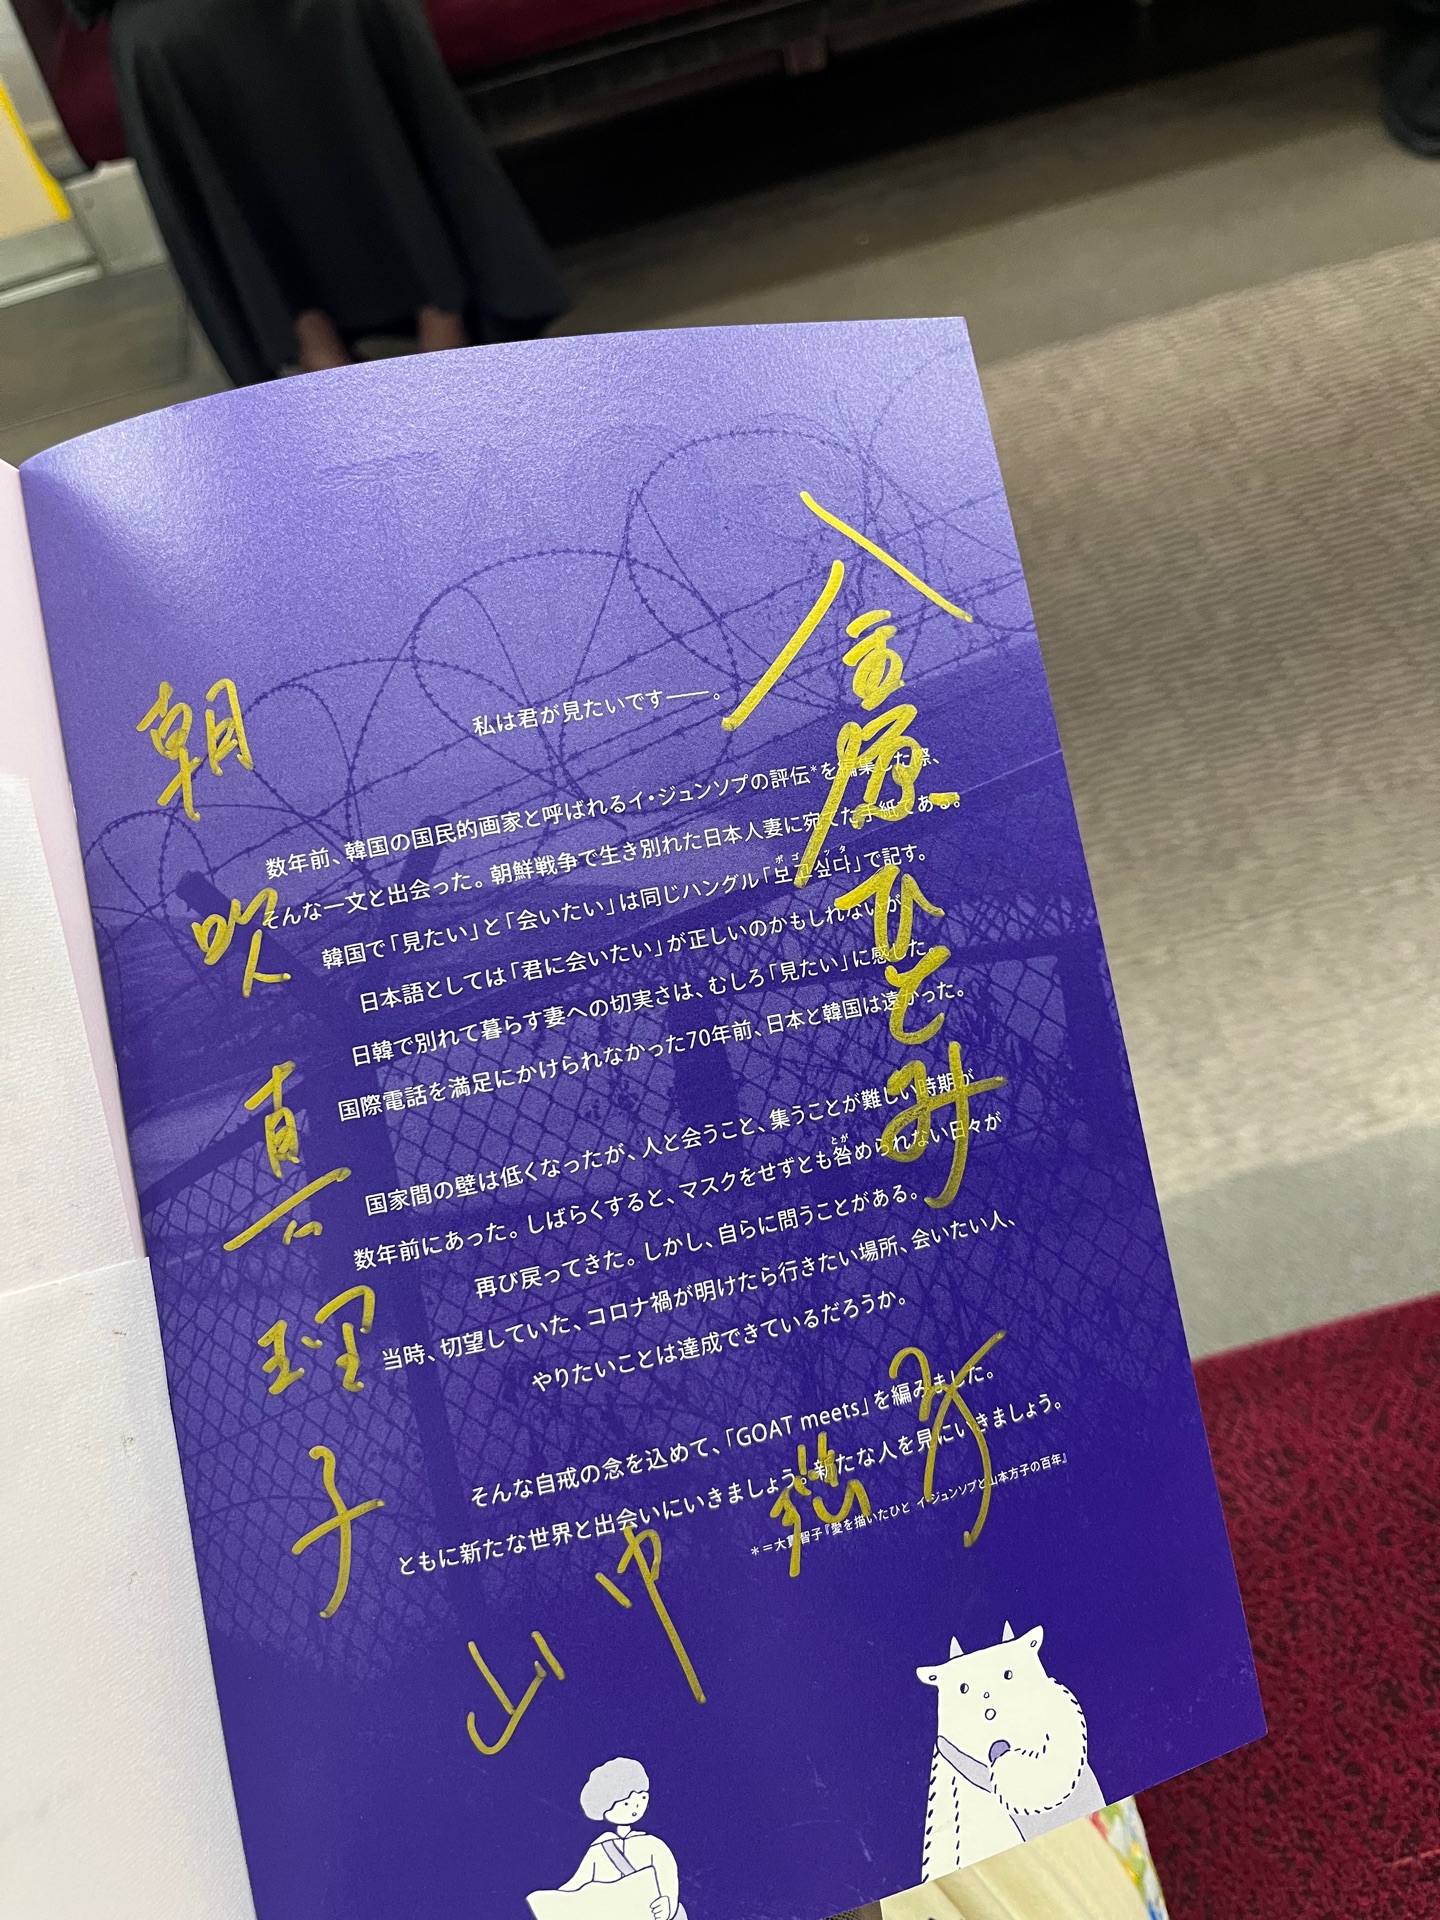 私は君が見たいです——。
数年前、韓国の国民的画家と呼ばれるイ・ジュンソプの評伝*を編集した際、
そんな一文と出会った。朝鮮戦争で生き別れた日本人妻に宛てた手紙である。
韓国で「見たい」と「会いたい」は同じハングル「보고싶다」で記す。
日本語としては「君に会いたい」が正しいのかもしれないが、
日韓で別れて暮らす妻への切実さは、むしろ「見たい」に感じた。
国際電話を満足にかけられなかった70年前、日本と韓国は遠かった。
国家間の壁は低くなったが、人と会うこと、集うことが難しい時期が
数年前にあった。しばらくすると、マスクをせずとも咎められない日々が
再び戻ってきた。しかし、自らに問うことがある。
当時、切望していた、コロナ禍が明けたら行きたい場所、会いたい人、
やりたいことは達成できているだろうか。
そんな自戒の念を込めて、「GOAT meets」を編みました。
ともに新たな世界と出会いにいきましょう。新たな人を見にいきましょう。
*=大貫智子『愛を描いたひと イ・ジュンソプと山本方子の百年』
金原ひとみ
朝吹真理子
山中